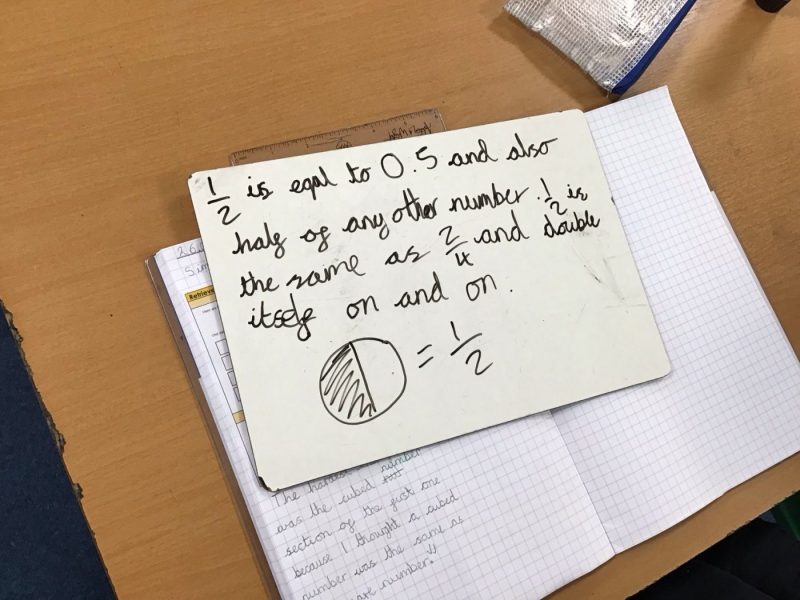 1/2 is eqal to 0.5 and also
half of any other number. 1/2 is
the same as 2/4 and double
itself on and on.
= 1/2
Retrieve
The hardest number
was the cubed
section of the just one
because I thought a cubed
number was the same as
number!!